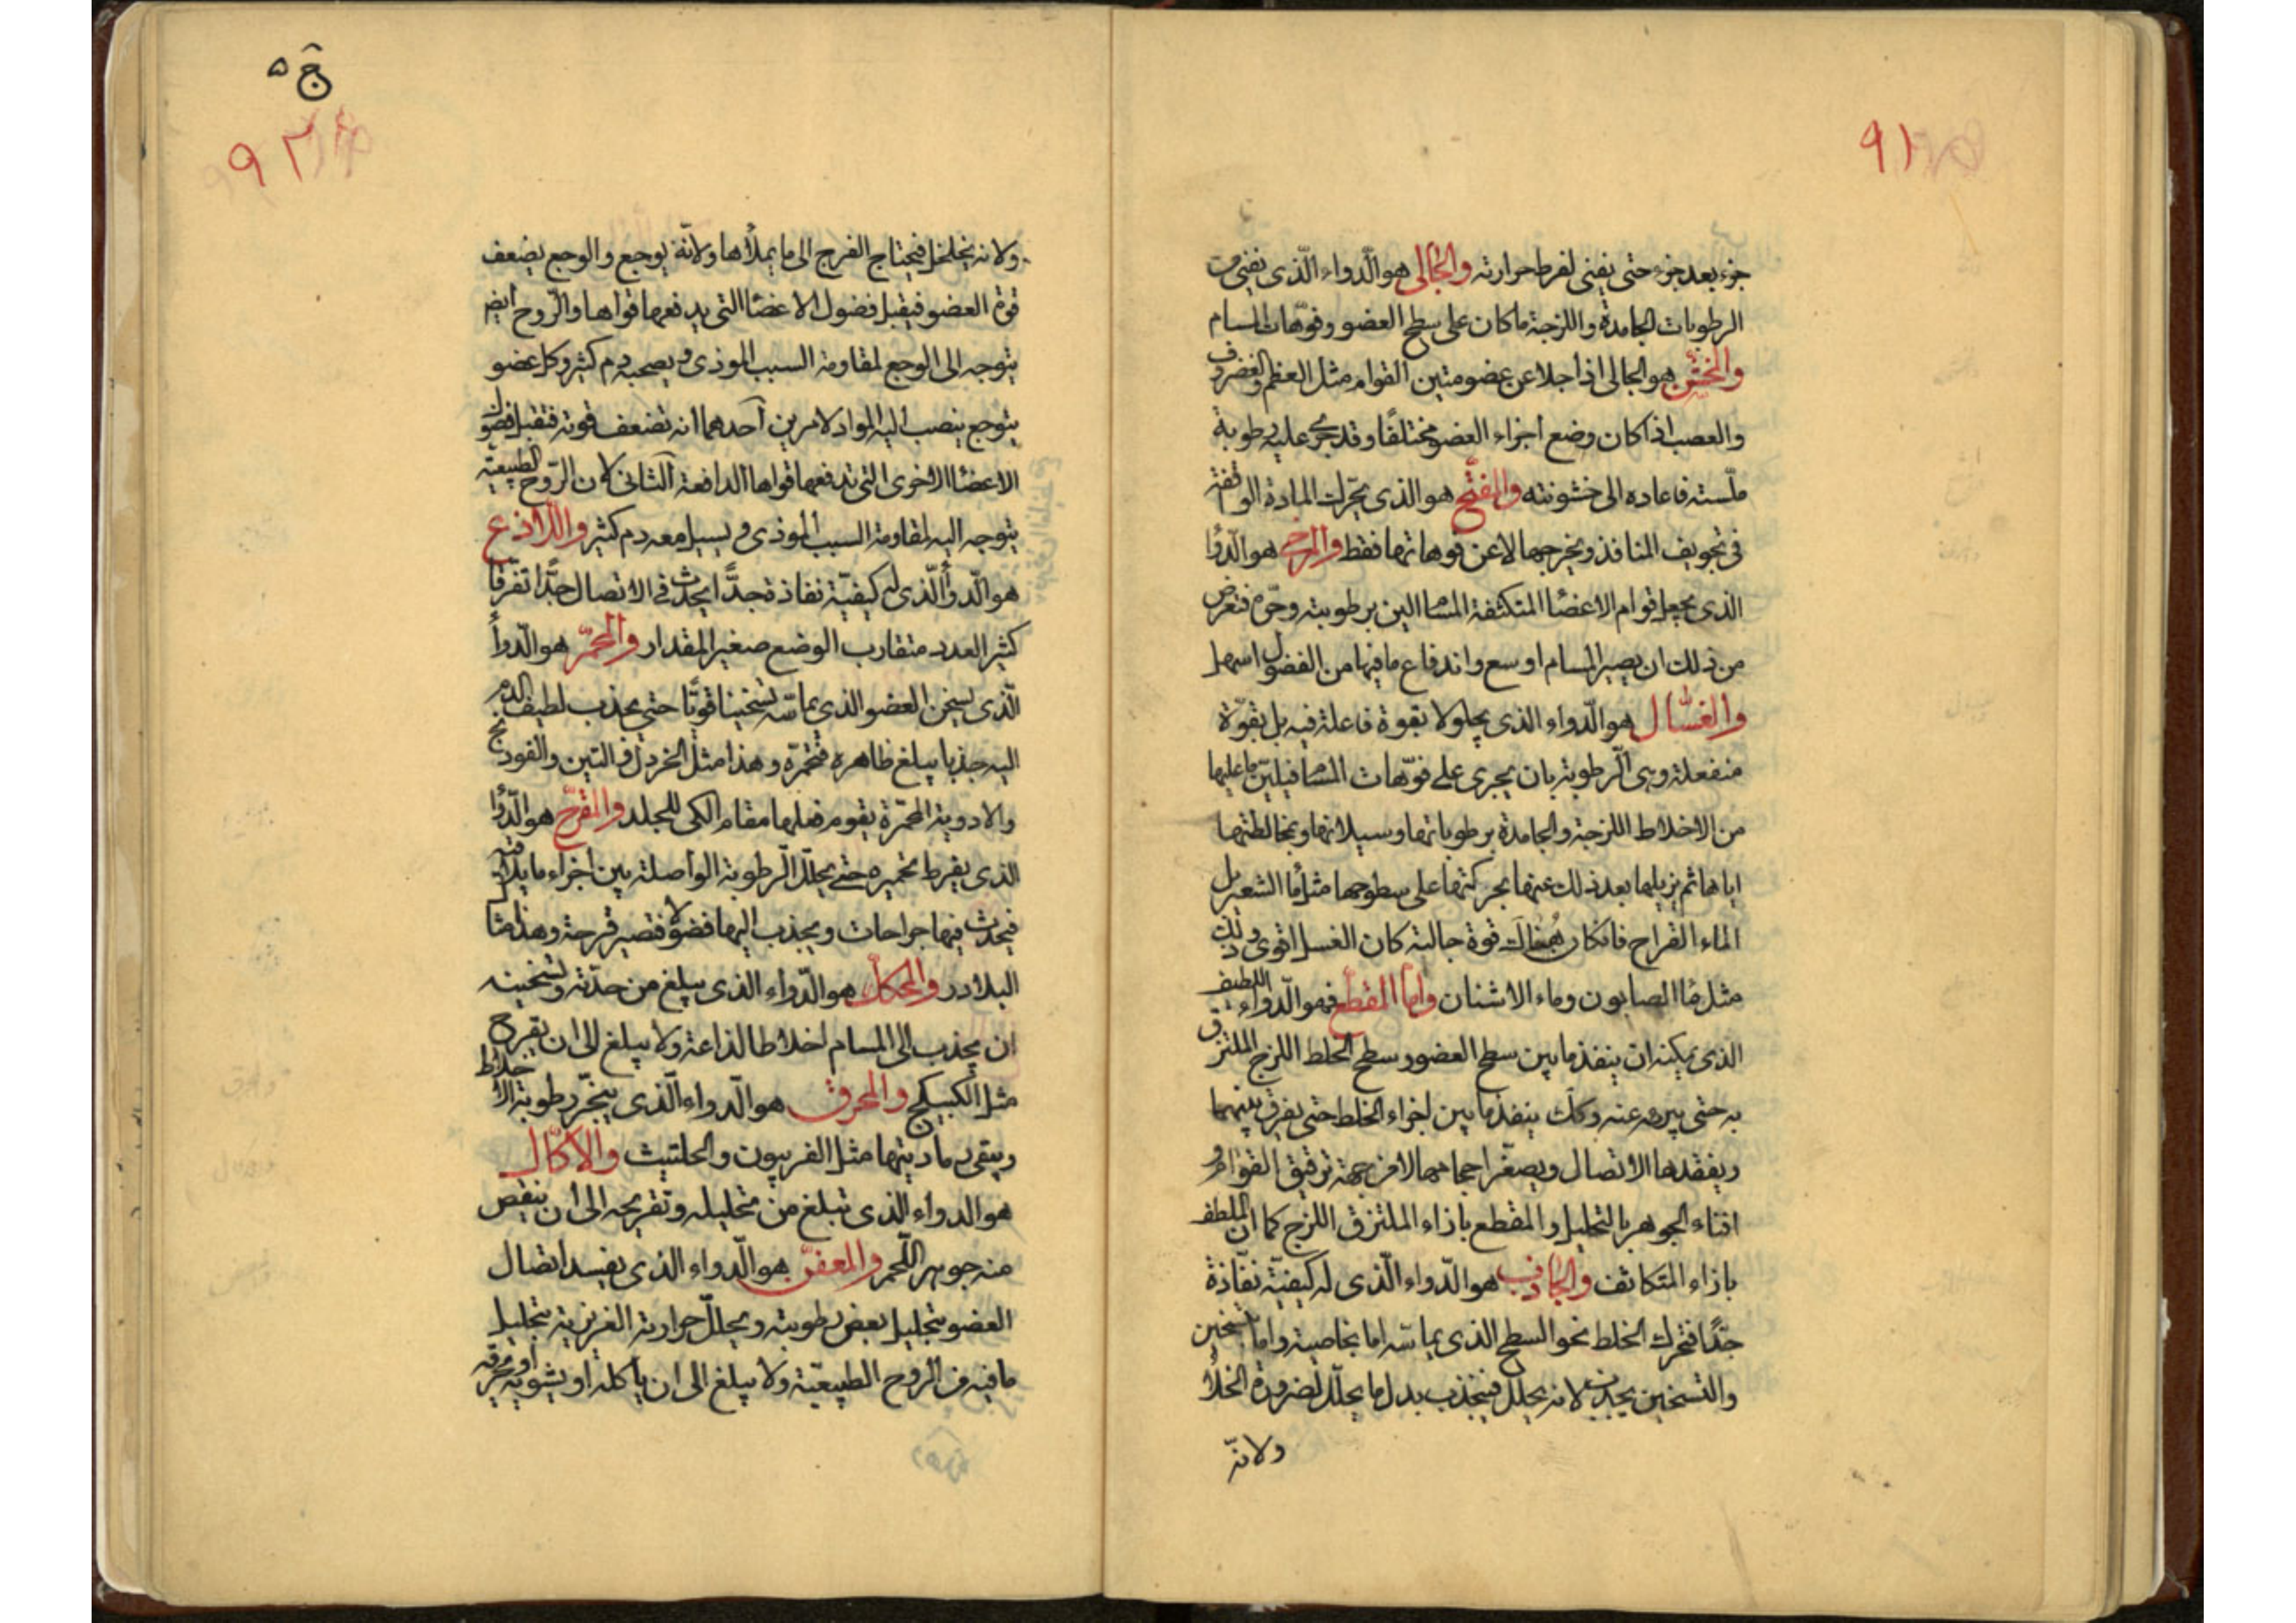 ٩١
جزء بعد جزء حتى يفنى لفرط حرارته والجالى هو الدواء الّذى يفنى من
الرطوبات الجامدة واللزجة ما كان على سطح العضو وفوّهات المسام
والمخشّن هو الجالى اذا جلا عن عضو متين القوام مثل العظم والغضروف
والعصب اذا كان وضع اجزاء العضو مختلفًا وقد جرى عليه رطوبة
ملّسته فاعاده الى خشونته والمفتّح هو الذى يحّرك المادة الواقفة
فى تجويف المنافذ ويخرجها لا عن فوهاتها فقط والمرخى هو الدّوا
الذى يجعل قوام الاعضا المتكثفة المسا الين برطوبته وحرّه فتعرض
من ذلك ان يصير المسام اوسع واندفاع ما فيها من الفضول اسهل
والغسّال هو الدّواء الذى يجلو لا بقوة فاعلة فيه بل بقوّة
منفعلة وهى الّرطوبة بان يجرى على فوّهات المسا فيليّن ما عليها
من الاخلاط اللزجة والجامدة برطوباتها وسيلانها وبمخالطتها
اياها ثم يزيلها بعد ذلك عنها بحركتها على سطوحها مثل ما الشعير بل
الماء القراح فانكان هُناك قوة جالية كان الغسل اقوى وذلك
مثل ما الصابون وماء الاشنان وامّا المقطّع فهو الّدواء اللطيف
الذى يمكنه ان ينفذ ما بين سطح العضو وسطح الخلط اللزج الملتزق
به حتى يبريه عنه وكك ينفذ ما بين اجزاء الخلط حتى يفرق بينهما
ويفقدها الاتصال ويصغّر احجامها لا من جهة ترقيق القوام و
افناء الجوهر بالتحليل والمقطع بازاء الملتزق اللزج كما ان الملطف
بازاء المتكاثف والجاذب هو الدّواء الّذى له كيفيّة نفّاذة
جدًّا فتحرك الخلط نحو السطح الذى يماسّه اما بخاصية واما بتسخين
والتسخين يجذب لانه يحلل فينجذب بدل ما يحلّل لضرورة الخلأ
ولانّه
ج ۵
٩٢
ولانه يخلخل فيحتاج الفرج الى ما يملأها ولانّه يوجع والوجع يضعف
قوة العضو فيقبل فضول الاعضا التى يدفعها قواها والرّوح ايض
يتوجه الى الوجع لمقاومة السبب الموذى ويصحبه دم كثير وكل عضو
يتوجع ينصب اليه المواد لامرين آحدهما انه تضعف قوته فتقبل فضول
الاعضا الاخرى التى تدفعها قواها الدافعة آلثانى لان الرّوح الطبيعيّة
يتوجه اليه لمقاومة السبب الموذى ويسيل معه دم كثير واللّاذع
هو الّدوأ الّذى له كيفيّة نفاذة جدًّا يحدث فى الاتصال جدًّا تفّرقا
كثير العدد متقارب الوضع صغير المقدار والمحمّر هو الّدوأ
الّذى يسخن العضو الذى يماسّه تسخينا قويًّا حتى يجذب لطيف الدم
اليه جذبا يبلغ ظاهره فتحمّره وهذا مثل الخردل والتين والفودنج
والادوية المحّمرة يقوم فعلها مقام الكى للجلد والمقرّح هو الّدوا
الذى يفرط تحميره حتى يحلّل الّرطوبة الواصلة بين اجزاء ما يلاقيه
فيحدث فيها جراحات ويجذب اليها فضولا فتصير قرحة وهذا مثل
البلادر والحكاك هو الّدواء الذى يبلغ من حدّته وتسخينه
ان يجذب الى المسام اخلاطا لذاعة ولا يبلغ الى ان تقرح
مثل الكبيكج والمحرق هو الّدواء الّذى يبخّر رطوبة الاخلاط
ويبقى رماديتها مثل الفربيون والحلتيث والاكّال
هو الدواء الذى تبلغ من تحليله وتقريحه الى ان ينقص
منه جوهر اللّحم والمعفّن هو الّدواء الذى يفسد اتصال
العضو بتحليل بعض رطوبته ويحلّل حرارته الغريزية بتحليل
ما فيه من الروح الطبيعيّة ولا يبلغ الى ان ياكله او يشويه او يحرقه